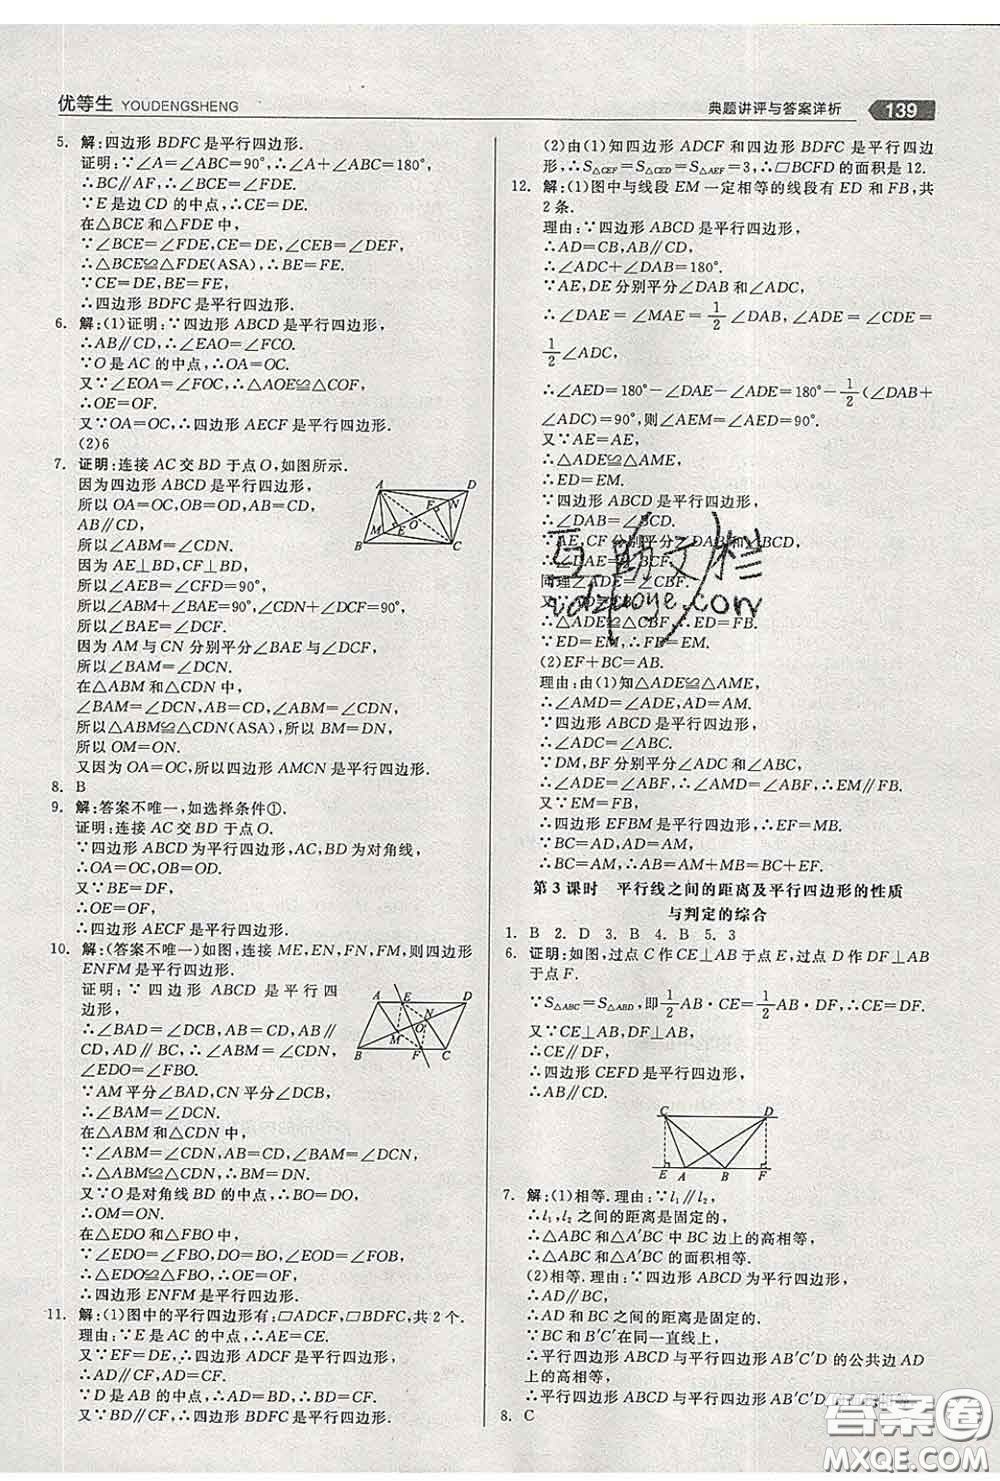 优等生 YOUDENGSHENG
典题讲评与答案详析 139
5. 解:四边形 BDFC 是平行四边形.
证明:∵∠A=∠ABC=90°,∴∠A+∠ABC=180°,
∴BC∥AF,∴∠BCE=∠FDE.
∵E 是边 CD 的中点,∴CE=DE.
在△BCE 和△FDE 中,
∵∠BCE=∠FDE,CE=DE,∠CEB=∠DEF,
∴△BCE≌△FDE(ASA),∴BE=FE.
∵CE=DE,BE=FE,
∴四边形 BDFC 是平行四边形.
6. 解:(1)证明:∵四边形 ABCD 是平行四边形,
∴AB∥CD,∴∠EAO=∠FCO.
∵O 是 AC 的中点,∴OA=OC.
又∵∠EOA=∠FOC,∴△AOE≌△COF,
∴OE=OF.
又∵OA=OC,∴四边形 AECF 是平行四边形.
(2)6
7. 证明:连接 AC 交 BD 于点 O,如图所示.
因为四边形 ABCD 是平行四边形,
所以 OA=OC,OB=OD,AB=CD,
AB∥CD,
所以∠ABM=∠CDN.
因为 AE⊥BD,CF⊥BD,
所以∠AEB=∠CFD=90°,
所以∠ABM+∠BAE=90°,∠CDN+∠DCF=90°,
所以∠BAE=∠DCF.
因为 AM 与 CN 分别平分∠BAE 与∠DCF,
所以∠BAM=∠DCN.
在△ABM 和△CDN 中,
∠BAM=∠DCN,AB=CD,∠ABM=∠CDN,
所以△ABM≌△CDN(ASA),所以 BM=DN,
所以 OM=ON.
又因为 OA=OC,所以四边形 AMCN 是平行四边形.
A D F N O M E B C
8. B
9. 解:答案不唯一,如选择条件①.
证明:连接 AC 交 BD 于点 O.
∵四边形 ABCD 为平行四边形,AC,BD 为对角线,
∴OA=OC,OB=OD.
又∵BE=DF,
∴OE=OF,
∴四边形 AECF 是平行四边形.
10. 解:(答案不唯一)如图,连接 ME,EN,FN,FM,则四边形
ENFM 是平行四边形.
证明:∵四边形 ABCD 是平行四
边形,
∴∠BAD=∠DCB,AB=CD,AB∥
CD,AD∥BC,∴∠ABM=∠CDN,
∠EDO=∠FBO.
∵AM 平分∠BAD,CN 平分∠DCB,
∴∠BAM=∠DCN.
在△ABM 和△CDN 中,
∵∠BAM=∠DCN,AB=CD,∠ABM=∠CDN,
∴△ABM≌△CDN,∴BM=DN.
又∵O 是对角线 BD 的中点,∴BO=DO,
∴OM=ON.
在△EDO 和△FBO 中,
∵∠EDO=∠FBO,DO=BO,∠EOD=∠FOB,
∴△EDO≌△FBO,∴OE=OF,
∴四边形 ENFM 是平行四边形.
A E D N O M B F C
11. 解:(1)图中的平行四边形有:▱ADCF,▱BDFC,共 2 个.
理由:∵E 是 AC 的中点,∴AE=CE.
又∵EF=DE,∴四边形 ADCF 是平行四边形,
∴AD∥CF,AD=CF.
∵D 是 AB 的中点,∴AD=BD,∴BD=CF.
又∵BD∥CF,∴四边形 BDFC 是平行四边形.
(2)由(1)知四边形 ADCF 和四边形 BDFC 是平行四边
形,∴S△CEF=S△CED=S△AEF=3,∴▱BCFD 的面积是 12.
12. 解:(1)图中与线段 EM 一定相等的线段有 ED 和 FB,共
2 条.
理由:∵四边形 ABCD 是平行四边形,
∴AD=CB,AB∥CD,
∴∠ADC+∠DAB=180°.
∵AE,DE 分别平分∠DAB 和∠ADC,
∴∠DAE=∠MAE=1/2∠DAB,∠ADE=∠CDE=
1/2∠ADC,
∴∠AED=180°-∠DAE-∠ADE=180°-1/2(∠DAB+
∠ADC)=90°,则∠AEM=∠AED=90°.
又∵AE=AE,
∴△ADE≌△AME,
∴ED=EM.
∵四边形 ABCD 是平行四边形,
∴∠DAB=∠BCD.
∵AE,CF 分别平分∠DAB 和∠BCD,
∴∠DAE=∠BCF.
同理∠ADE=∠CBF.
又∵AD=CB,
∴△ADE≌△CBF,∴ED=FB.
∵ED=EM,∴FB=EM.
(2)EF+BC=AB.
理由:由(1)知△ADE≌△AME,
∴∠AMD=∠ADE,AD=AM.
∵四边形 ABCD 是平行四边形,
∴∠ADC=∠ABC.
∵DM,BF 分别平分∠ADC 与∠ABC,
∴∠ADE=∠ABF,∴∠AMD=∠ABF,∴EM∥FB.
又∵EM=FB,
∴四边形 EFBM 是平行四边形,∴EF=MB.
∵BC=AD,AD=AM,
∴BC=AM,∴AB=AM+MB=BC+EF.
第 3 课时 平行线之间的距离及平行四边形的性质
与判定的综合
1. B 2. D 3. B 4. B 5. 3
6. 证明:如图,过点 C 作 CE⊥AB 于点 E,过点 D 作 DF⊥AB
于点 F.
∵S△ABC=S△ABD,即1/2AB·CE=1/2AB·DF,∴CE=DF.
又∵CE⊥AB,DF⊥AB,
∴CE∥DF,
∴四边形 CEFD 是平行四边形,
∴AB∥CD.
C D E A B F
7. 解:(1)相等.理由:∵l₁∥l₂,
∴l₁,l₂ 之间的距离是固定的,
∴△ABC 和△A'BC 中 BC 边上的高相等,
∴△ABC 和△A'BC 的面积相等.
(2)相等.理由:∵四边形 ABCD 是平行四边形,
∴AD∥BC,
∴AD 和 BC 之间的距离是固定的.
∵BC 和 B'C' 在同一直线上,
∴平行四边形 ABCD 与平行四边形 AB'C'D 的公共边 AD
上的高相等,
∴平行四边形 ABCD 与平行四边形 AB'C'D
8. C
互助文档
答案圈
MXQE.COM